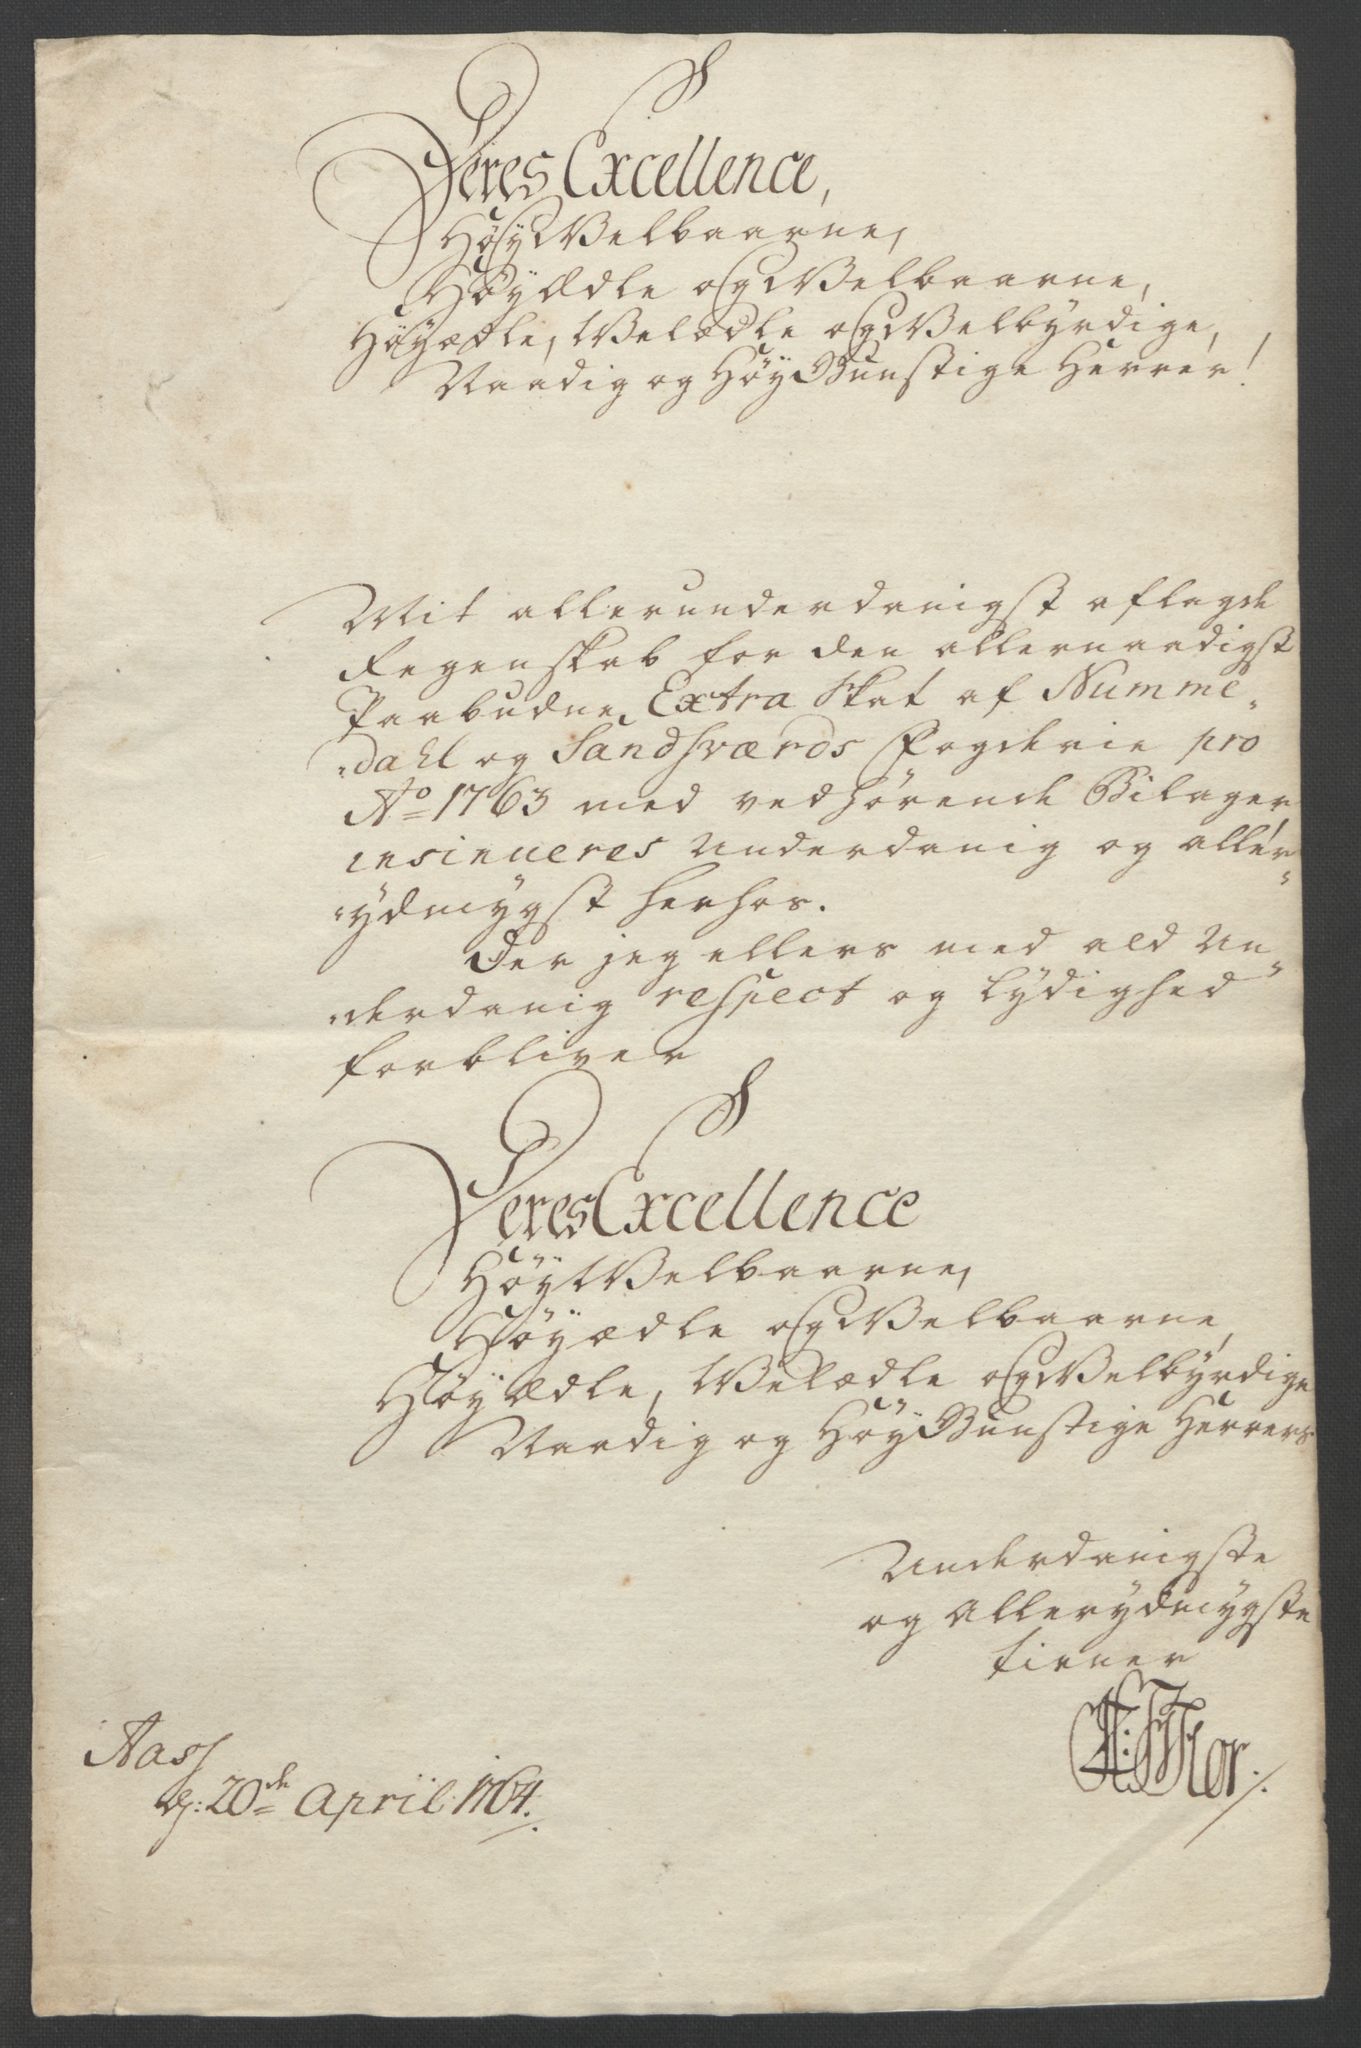 Deres Excellence,
HöyVelbaarne,
HöyÆdle og Velbaarne,
Höyædle, Velædle og Velbyrdige,
Naadig og HöyGunstige Herrer!
Mit allerunderdanigst aflagde
Regenskab for den allernaadigst
Paabudne Extra Skat af Numme„
„dahl og Sandsværds Fogderie pro
Ao 1763 med vedhørende Bilager
insinueres underdanig og aller„
„ydmygst herhos.
Der jeg ellers med ald Un„
„derdanig respect og Lydighed
forbliver
Deres Excellence
HöyVelbaarne,
Höyædle og Velbaarne,
HöyÆdle, Velædle og Velbyrdige
Naadig og HöyGunstige Herrers
Underdanigste
og Allerydmygste
tienner
Flor.
Aas
d: 20de April: 1764.